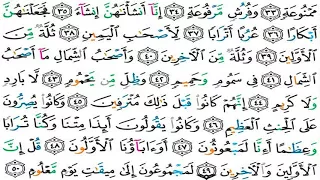 مَمْنُوعَةٍ ﴿٣٣﴾ وَفُرُشٍ مَّرْفُوعَةٍ ﴿٣٤﴾ إِنَّآ أَنشَأْنَٰهُنَّ إِنشَآءً ﴿٣٥﴾ فَجَعَلْنَٰهُنَّ
أَبْكَارًا ﴿٣٦﴾ عُرُبًا أَتْرَابًا ﴿٣٧﴾ لِّأَصْحَٰبِ ٱلْيَمِينِ ﴿٣٨﴾ ثُلَّةٌ مِّنَ
ٱلْأَوَّلِينَ ﴿٣٩﴾ وَثُلَّةٌ مِّنَ ٱلْءَاخِرِينَ ﴿٤٠﴾ وَأَصْحَٰبُ ٱلشِّمَالِ مَآ أَصْحَٰبُ
ٱلشِّمَالِ ﴿٤١﴾ فِى سَمُومٍ وَحَمِيمٍ ﴿٤٢﴾ وَظِلٍّ مِّن يَحْمُومٍ ﴿٤٣﴾ لَّا بَارِدٍ
وَلَا كَرِيمٍ ﴿٤٤﴾ إِنَّهُمْ كَانُوا۟ قَبْلَ ذَٰلِكَ مُتْرَفِينَ ﴿٤٥﴾ وَكَانُوا۟ يُصِرُّونَ
عَلَى ٱلْحِنثِ ٱلْعَظِيمِ ﴿٤٦﴾ وَكَانُوا۟ يَقُولُونَ أَئِذَا مِتْنَا وَكُنَّا تُرَابًا
وَعِظَٰمًا أَءِنَّا لَمَبْعُوثُونَ ﴿٤٧﴾ أَوَءَابَآؤُنَا ٱلْأَوَّلُونَ ﴿٤٨﴾ قُلْ إِنَّ
ٱلْأَوَّلِينَ وَٱلْءَاخِرِينَ ﴿٤٩﴾ لَمَجْمُوعُونَ إِلَىٰ مِيقَٰتِ يَوْمٍ مَّعْلُومٍ ﴿٥٠﴾